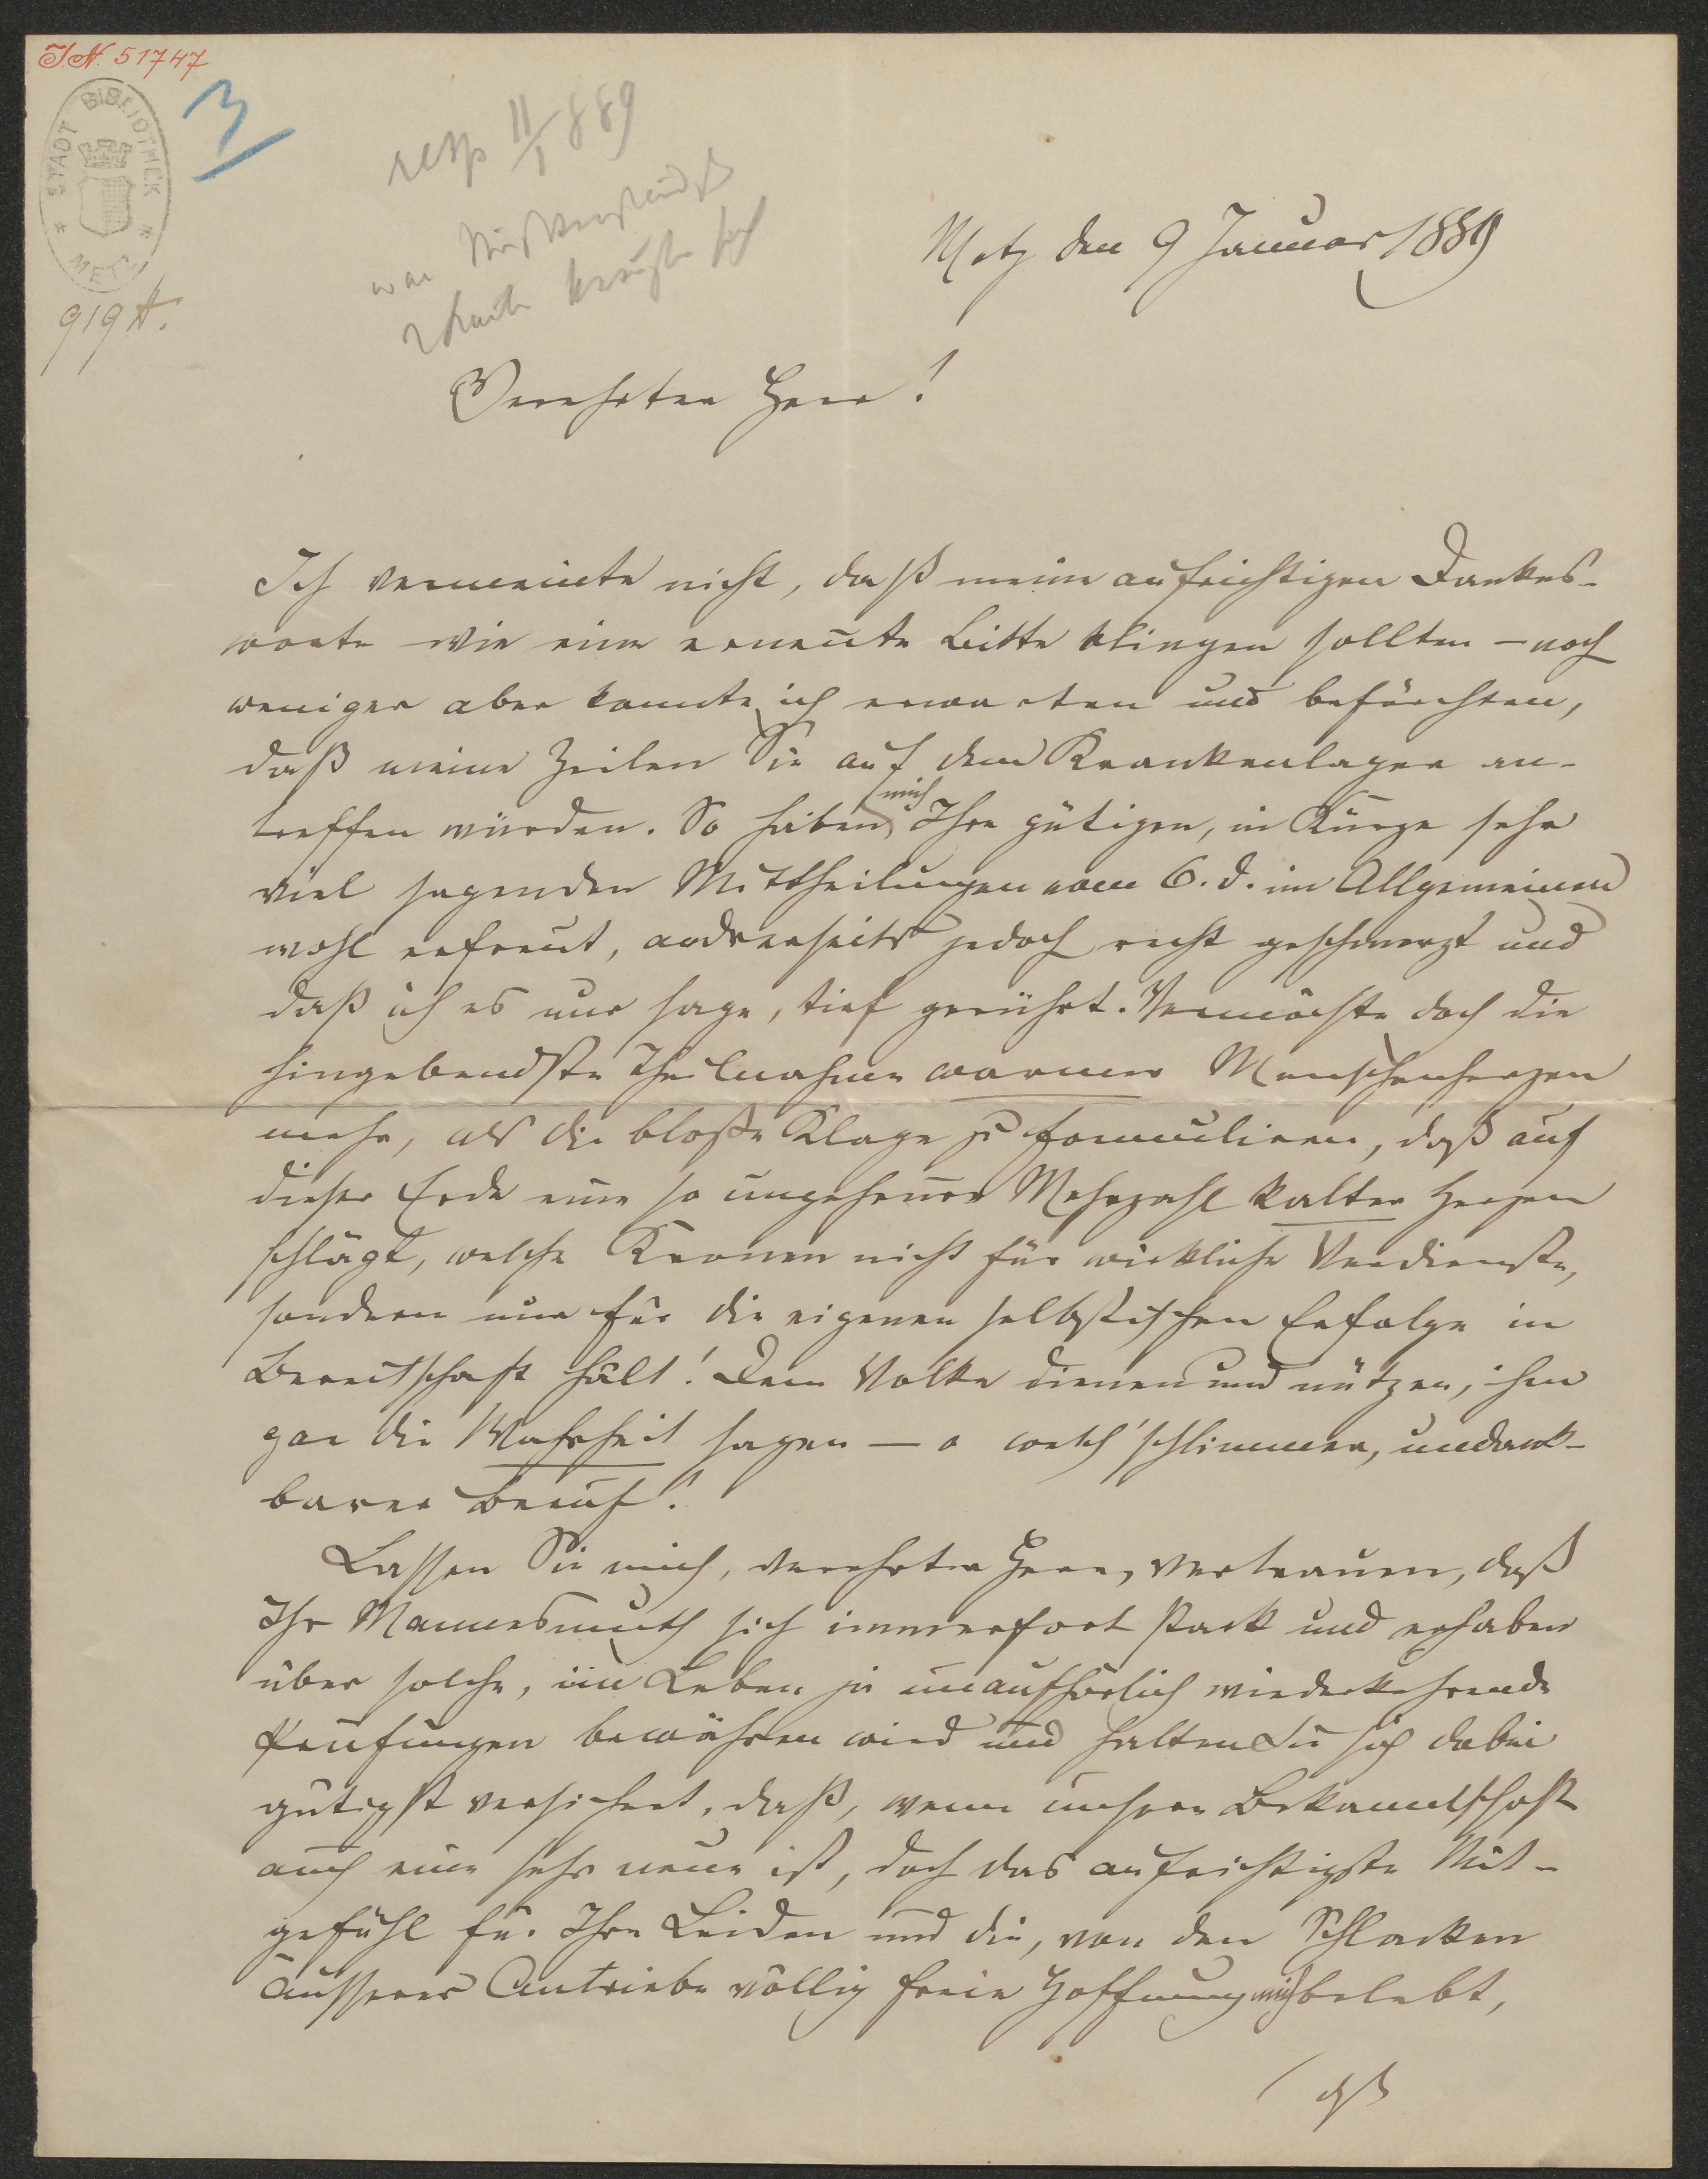 I.N. 51747
STADT BIBLIOTHEK
METZ
3
919 A.
resp 11/I 889
war Mißverständniß
Metz den 9 Januar 1889
Verehrter Herr!
Ich vermeinte nicht, daß meine aufrichtigen Dankes-
worte wie eine erneute Bitte klingen sollten – noch
weniger aber konnte ich erwarten und befürchten,
daß meine Zeilen Sie auf dem Krankenlager an-
treffen würden. So haben mich Ihre gütigen, in Kürze sehr
viel sagenden Mittheilungen vom 6. d. im Allgemeinen
wohl erfreut, andrerseits jedoch recht geschmerzt und
daß ich es nur sage, tief gerührt. Vermöchte doch die
hingebendste Theilnahme warmer Menschenherzen
mehr, als die bloße Klage zu formuliren, daß auf
dieser Erde eine so ungeheure Mehrzahl kalter Herzen
schlägt, welche Kronen nicht für wirkliche Verdienste,
sondern nur für die eigenen selbstischen Erfolge in
Bereitschaft hält! Dem Volke dienen und nützen, ihm
gar die Wahrheit sagen – o welch' schlimmer, undank-
barer Beruf!
Lassen Sie mich, verehrter Herr, vertrauen, daß
Ihr Mannesmuth sich immerfort stark und erhaben
über solche, im Leben ja unaufhörlich wiederkehrende
Prüfungen bewähren wird und halten Sie sich dabei
gütigst versichert, daß, wenn unsere Bekanntschaft
auch eine sehr neue ist, doch das aufrichtigste Mit-
gefühl für Ihre Leiden und die, von den Schlacken
äusserer Antriebe völlig freie Hoffnung mich belebt,
daß